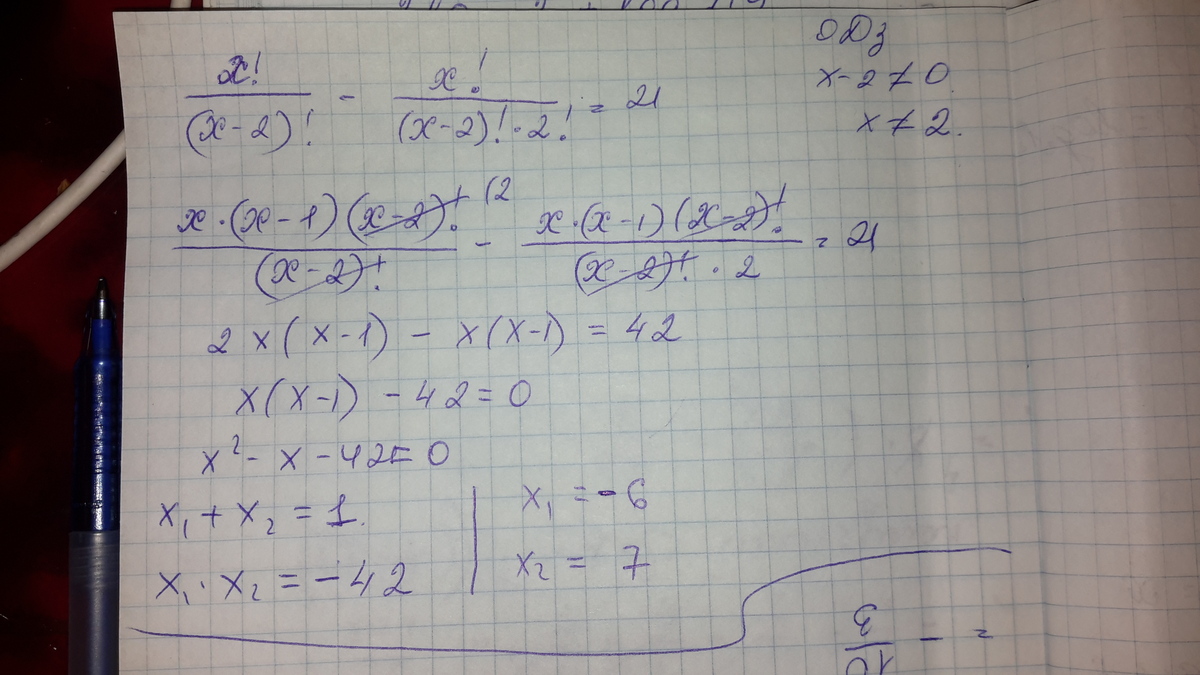 ОДЗ
x - 2 ≠ 0.
x ≠ 2.
x! / (x - 2)! - x! / ((x - 2)! · 2!) = 21
x · (x - 1)(x - 2)! (2 / (x - 2)! - x · (x - 1)(x - 2)! / ((x - 2)! · 2) = 21
2x(x - 1) - x(x - 1) = 42
x(x - 1) - 42 = 0
x² - x - 42 = 0
x₁ + x₂ = 1.
x₁ · x₂ = -42
x₁ = -6
x₂ = 7
= - 10 / 3